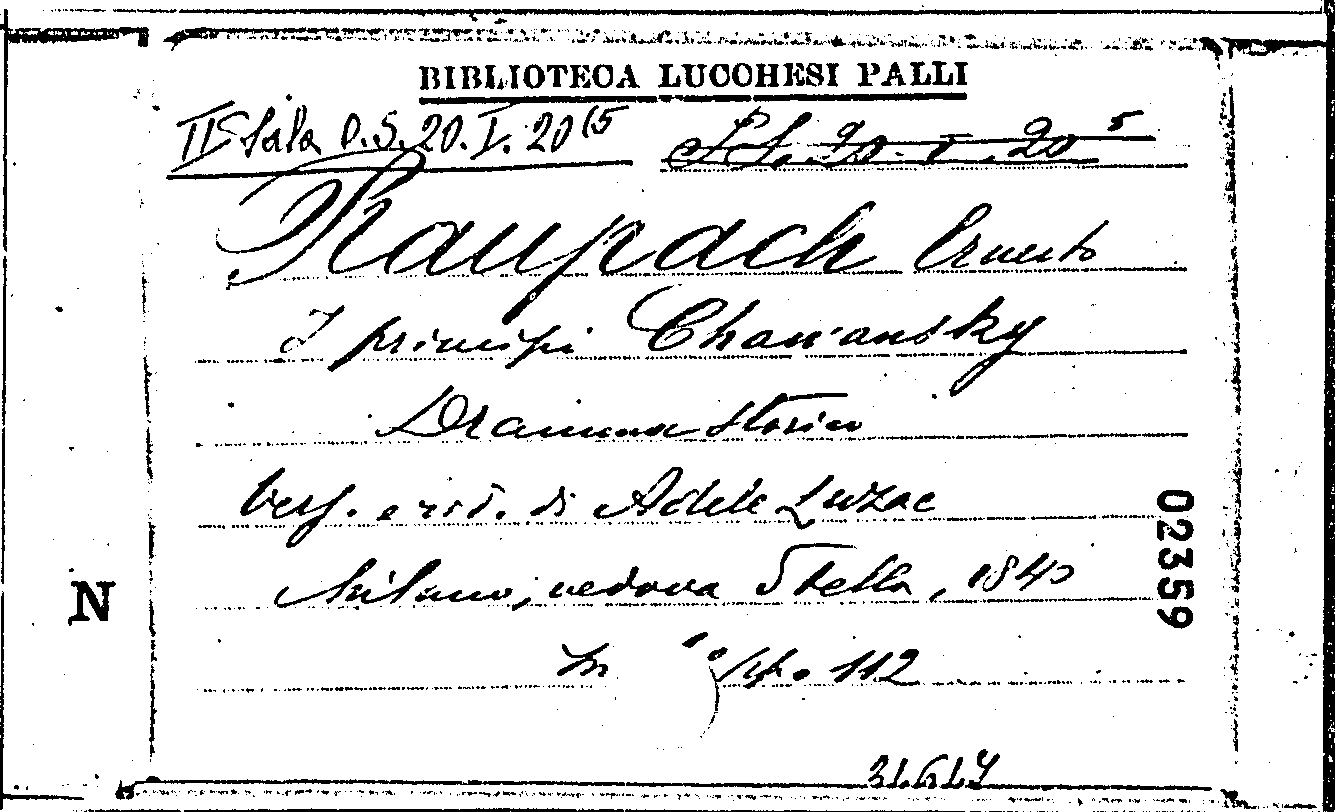 BIBLIOTECA LUCCHESI PALLI
II Sala D.S. 20. I. 20(5
S.S. 20. I. 20 5
Raupach Ernesto
I principi Chawansky
Dramma storico
Vers. e rid. di Adele Luzac
Milano, vedova Stella, 1840
In °, pp. 112
N
02359